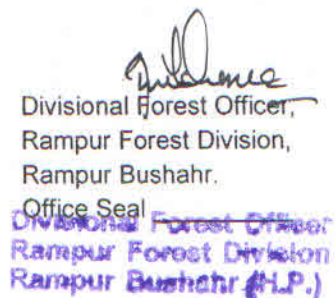 Divisional Forest Officer,
Rampur Forest Division,
Rampur Bushahr.
Office Seal
Divisional Forest Officer
Rampur Forest Division
Rampur Bushahr (H.P.)